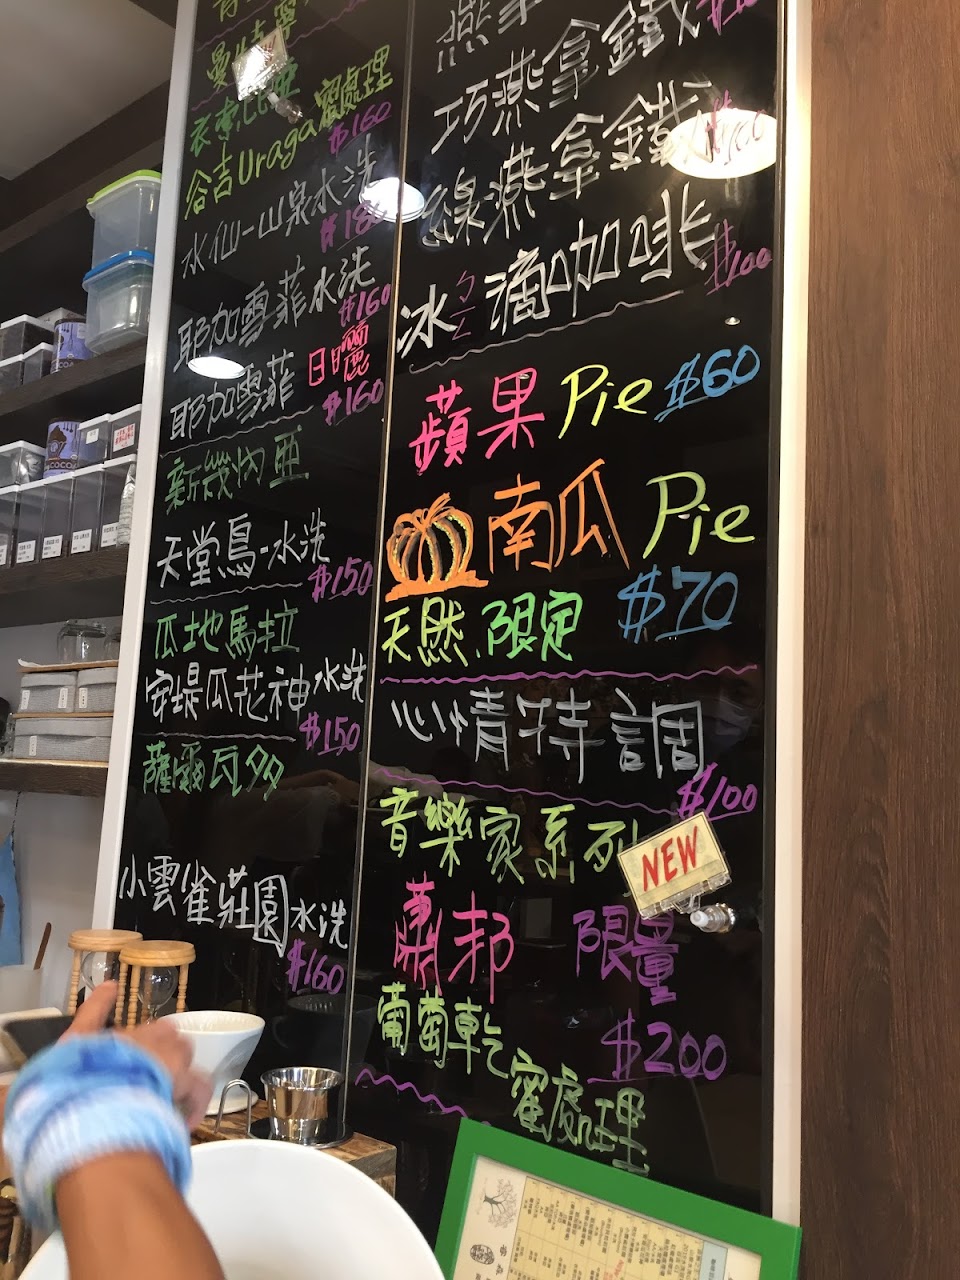 曼特寧
衣索比亞
谷吉Uraga蜜處理
$160
水仙-山泉水洗
$180
耶加雪菲水洗
$160
耶加雪菲 日曬
$160
新幾內亞
天堂鳥-水洗
$150
瓜地馬拉
安堤瓜花神水洗
$150
薩爾瓦多
小雲雀莊園水洗
$160
巧燕拿鐵
綠燕拿鐵
冰滴咖啡
$100
蘋果 Pie $60
南瓜 Pie
天然.限定 $70
心情特調
$100
音樂家系列
NEW
蕭邦 限量
葡萄乾 $200
蜜處理